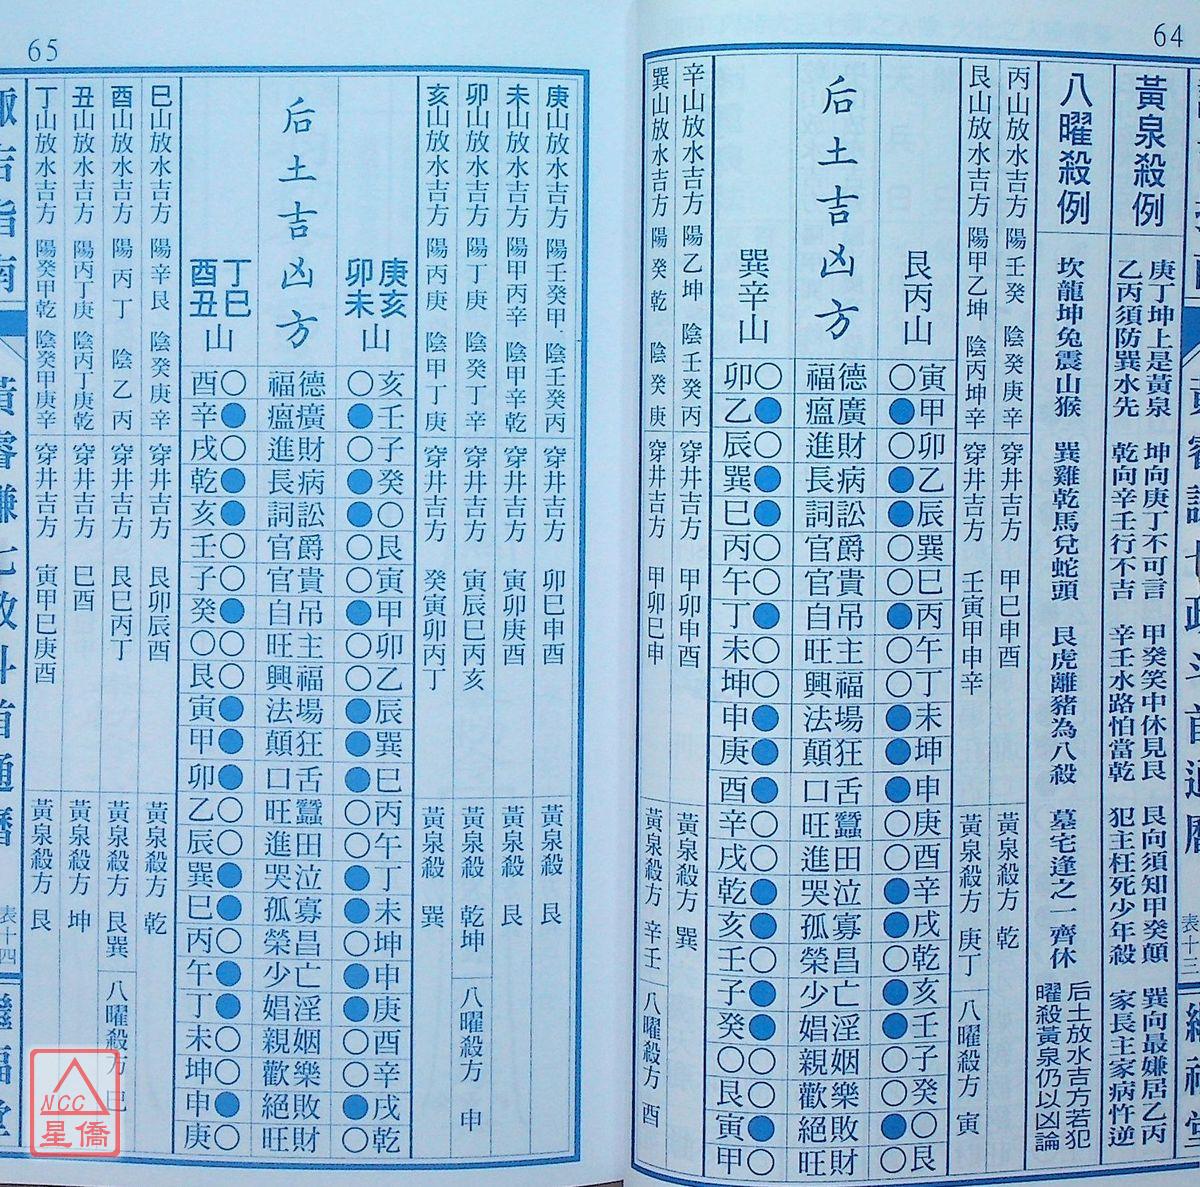 64
黃泉殺例
庚丁坤上是黃泉 坤向庚丁不可言 甲癸笑中休見艮 艮向須知甲癸顛 巽向最嫌居乙丙
乙丙須防巽水先 乾向辛壬行不吉 辛壬水路怕當乾 犯主枉死少年殺 家長主家病忤逆
八曜殺例
坎龍坤兔震山猴 巽雞乾馬兌蛇頭 艮虎離豬為八殺 墓宅逢之一齊休
后土放水吉方若犯
曜殺黃泉仍以凶論
丙山放水吉方 陽壬癸 陰癸庚辛 穿井吉方 甲巳申酉 黃泉殺方 乾
艮山放水吉方 陽甲乙坤 陰丙坤辛 穿井吉方 壬寅甲申辛 黃泉殺方 庚丁 八曜殺方 寅
后土吉凶方
艮丙山
○寅
●甲
○卯
●乙
●辰
○巽
○巳
●丙
○午
○丁
●未
●坤
●申
○庚
○酉
●辛
●戌
○乾
●亥
●壬
○子
○癸
●○
○艮
福德
瘟廣
進財
長病
詞訟
官爵
官貴
自吊
旺主
興福
法場
顛狂
口舌
旺蠶
進田
哭泣
孤寡
榮昌
少亡
娼淫
親姻
歡樂
絕敗
旺財
巽辛山
卯○
乙●
辰○
巽●
巳●
丙○
午○
丁●
未○
坤○
申●
庚●
酉●
辛○
戌○
乾●
亥●
壬○
子●
癸●
○○
艮○
寅●
甲○
辛山放水吉方 陽乙坤 陰壬癸丙 穿井吉方 甲卯申酉 黃泉殺方 巽
巽山放水吉方 陽癸乾 陰癸庚 穿井吉方 甲卯巳申 黃泉殺方 辛壬 八曜殺方 酉
表十三
65
庚山放水吉方 陽壬癸甲 陰壬癸丙 穿井吉方 卯巳申酉 黃泉殺 艮
未山放水吉方 陽甲丙辛 陰甲辛乾 穿井吉方 寅卯庚酉 黃泉殺 艮
卯山放水吉方 陽丁庚 陰癸丁辛 穿井吉方 寅辰巳丙亥 黃泉殺方 乾坤 八曜殺方 申
亥山放水吉方 陽丙庚 陰甲丁庚 穿井吉方 癸寅卯丙丁 黃泉殺 巽
后土吉凶方
庚亥卯未山
○亥
●壬
○子
●癸
●○
○艮
○寅
●甲
○卯
○乙
●辰
●巽
●巳
○丙
○午
●丁
●未
○坤
●申
●庚
○酉
○辛
●戌
○乾
福德
瘟廣
進財
長病
詞訟
官爵
官貴
自吊
旺主
興福
法場
顛狂
口舌
旺蠶
進田
哭泣
孤寡
榮昌
少亡
娼淫
親姻
歡樂
絕敗
旺財
丁巳酉丑山
酉○
辛●
戌○
乾●
亥●
壬○
子○
癸●
○○
艮○
寅●
甲●
卯●
乙○
辰○
巽●
巳●
丙○
午●
丁●
未○
坤○
申●
庚○
巳山放水吉方 陽辛艮 陰癸庚辛 穿井吉方 艮卯辰酉 黃泉殺方 乾
酉山放水吉方 陽丙丁 陰乙丙 穿井吉方 艮巳丙丁 黃泉殺方 艮巽 八曜殺方 巳
丑山放水吉方 陽丙丁庚 陰丙丁庚乾 穿井吉方 巳酉 黃泉殺方 坤
丁山放水吉方 陽癸甲乾 陰癸甲庚辛 穿井吉方 寅甲巳庚酉 黃泉殺方 艮
表十四
NCC
星僑